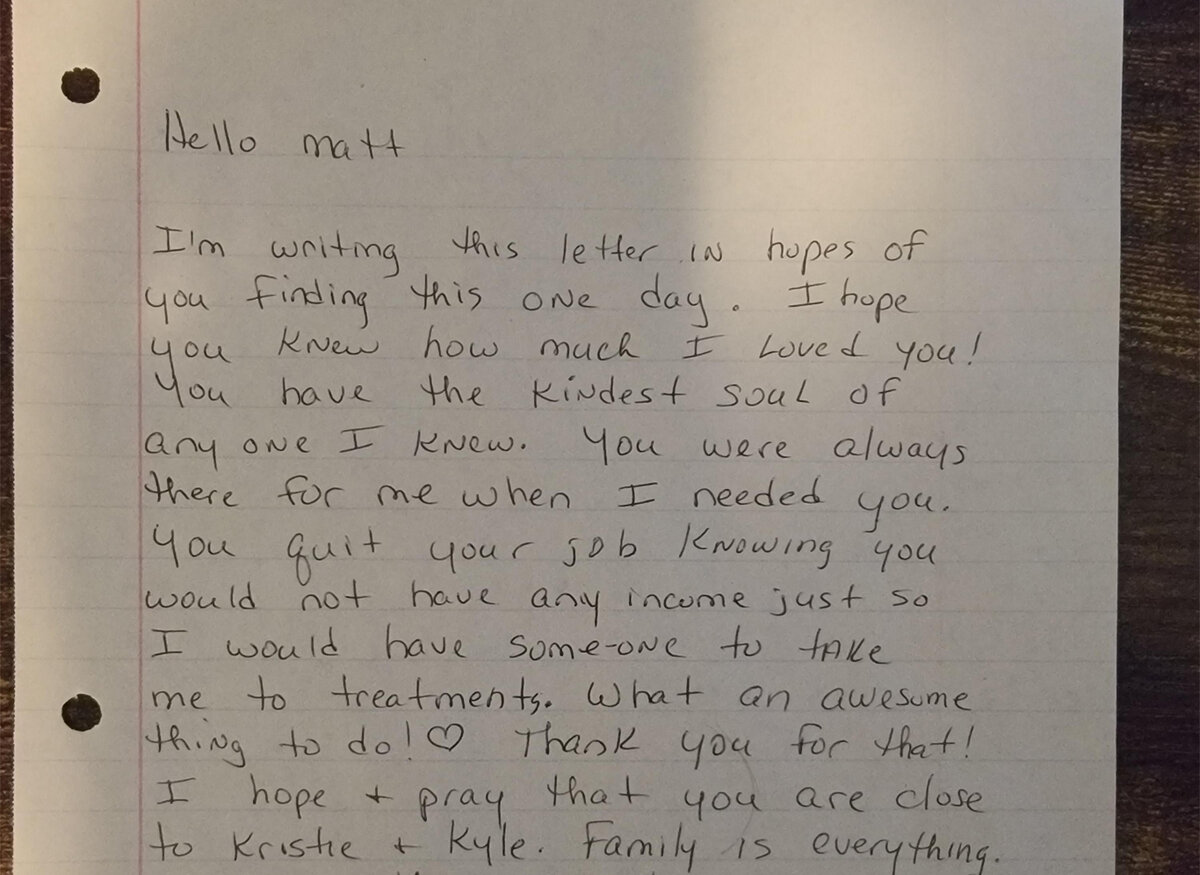 Hello matt
I'm writing this letter in hopes of
you finding this one day. I hope
you knew how much I loved you!
You have the kindest soul of
any one I knew. You were always
there for me when I needed you.
You quit your job knowing you
would not have any income just so
I would have some-one to take
me to treatments. What an awesome
thing to do! ♡ Thank you for that!
I hope + pray that you are close
to Kristie + Kyle. Family is everything.